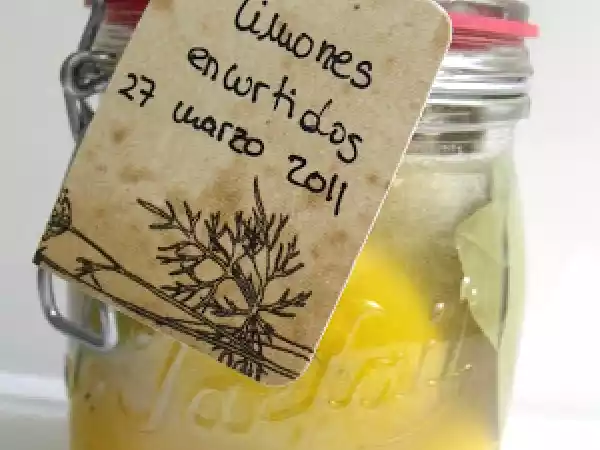 Limones
encurtidos
27 marzo 2011